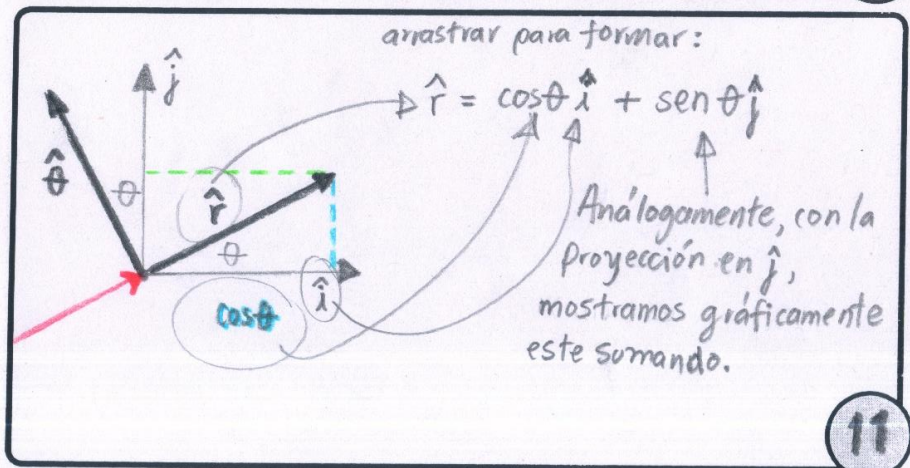 arrastrar para formar:
ĵ
r̂ = cosθ î + sen θ ĵ
θ̂
θ
r̂
θ
Análogamente, con la
Proyección en ĵ,
mostramos gráficamente
este sumando.
î
cosθ
11